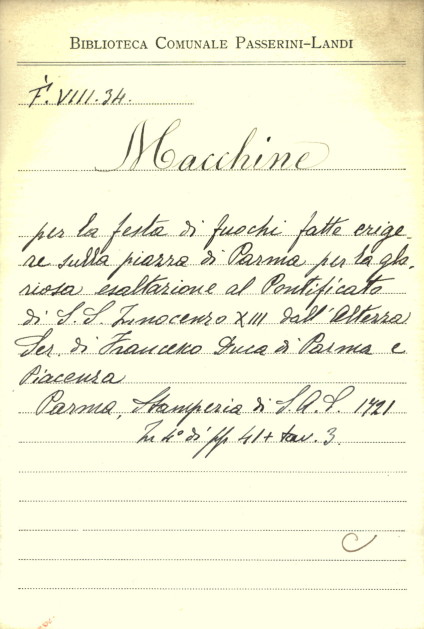 BIBLIOTECA COMUNALE PASSERINI-LANDI
F. VIII. 34.
Macchine
per la festa di fuochi fatte erige-
re sulla piazza di Parma per la glo-
riosa esaltazione al Pontificato
di S. S. Innocenzo XIII dall'Altezza
Ser. di Francesco Duca di Parma e
Piacenza
Parma, Stamperia di S. A. S. 1721
In 4° di pp 41 + tav. 3.
C